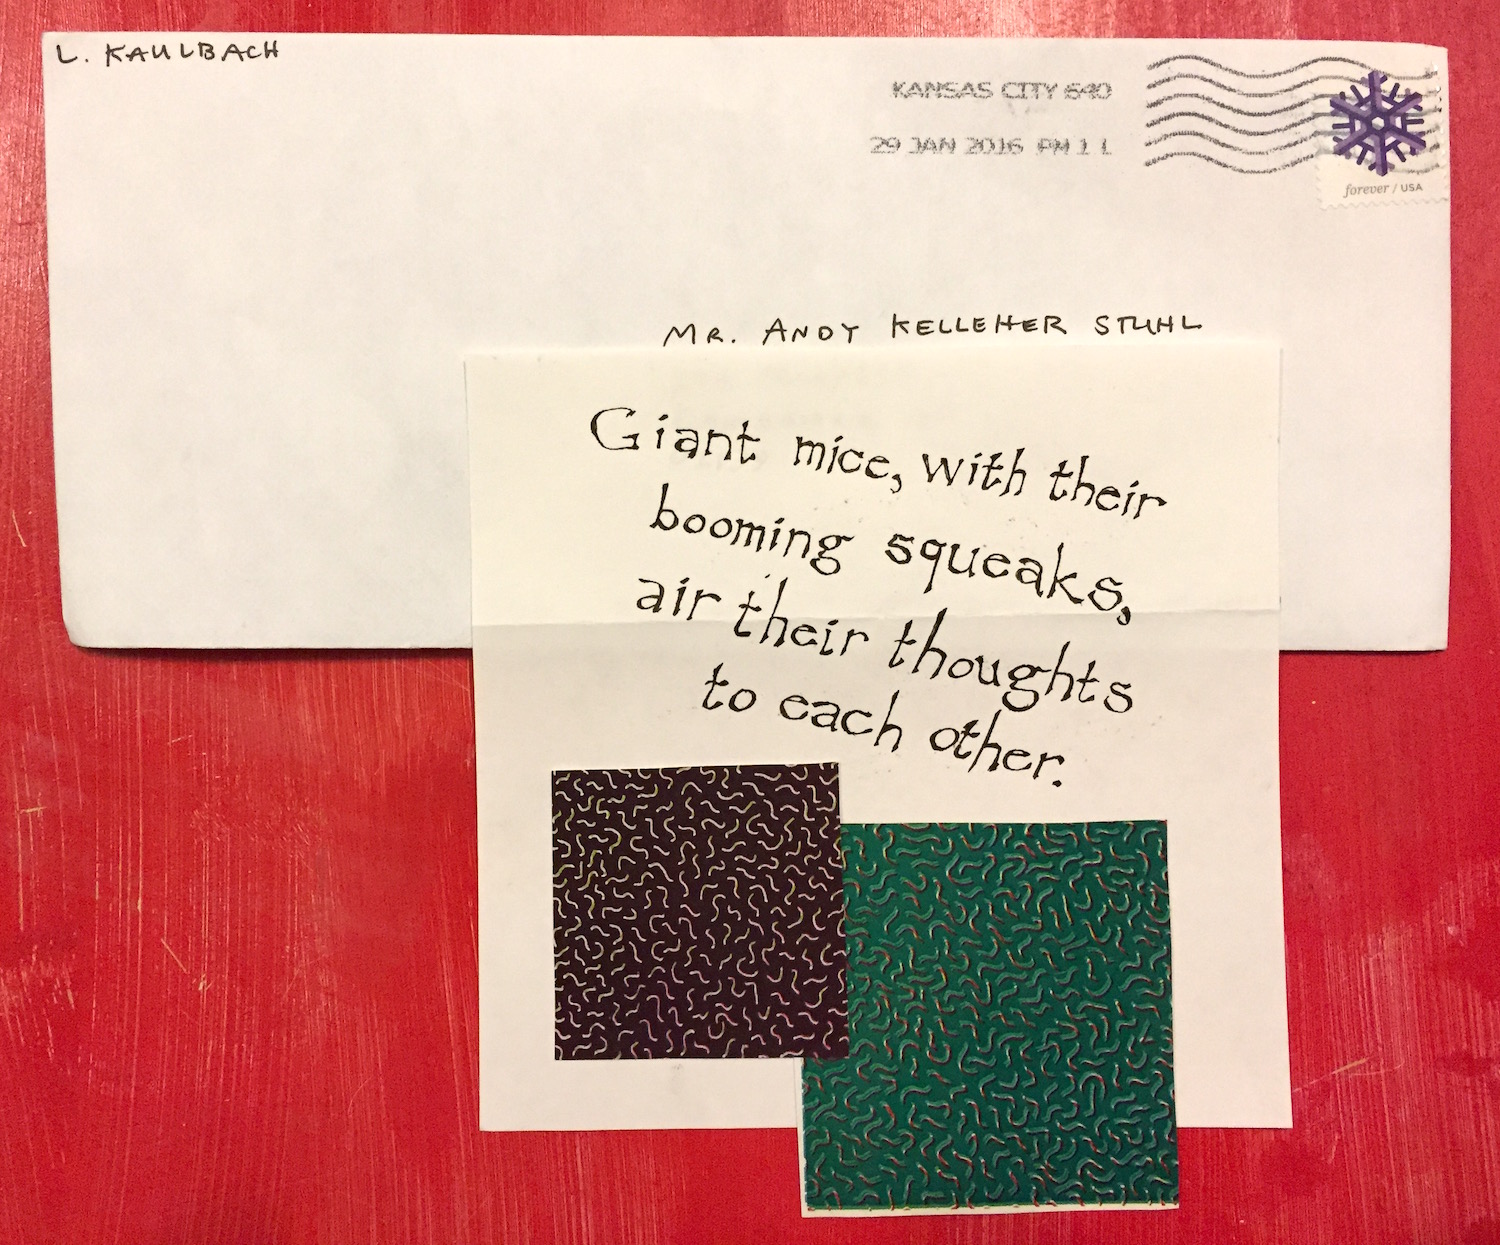 L. KAULBACH
KANSAS CITY 640
29 JAN 2016 PM 1 L
forever / USA
MR. ANDY KELLEHER STUHL
Giant mice, with their
booming squeaks,
air their thoughts
to each other.